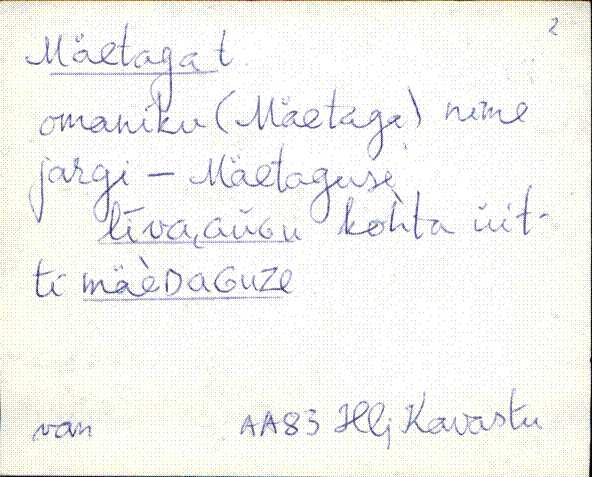 2
Mäetaga t
omaniku (Mäetaga) nime
järgi – Mäetaguse
līva,aùGu kohta üit-
ti mäèDaGuZe
van
AA83 Hlj Kavastu